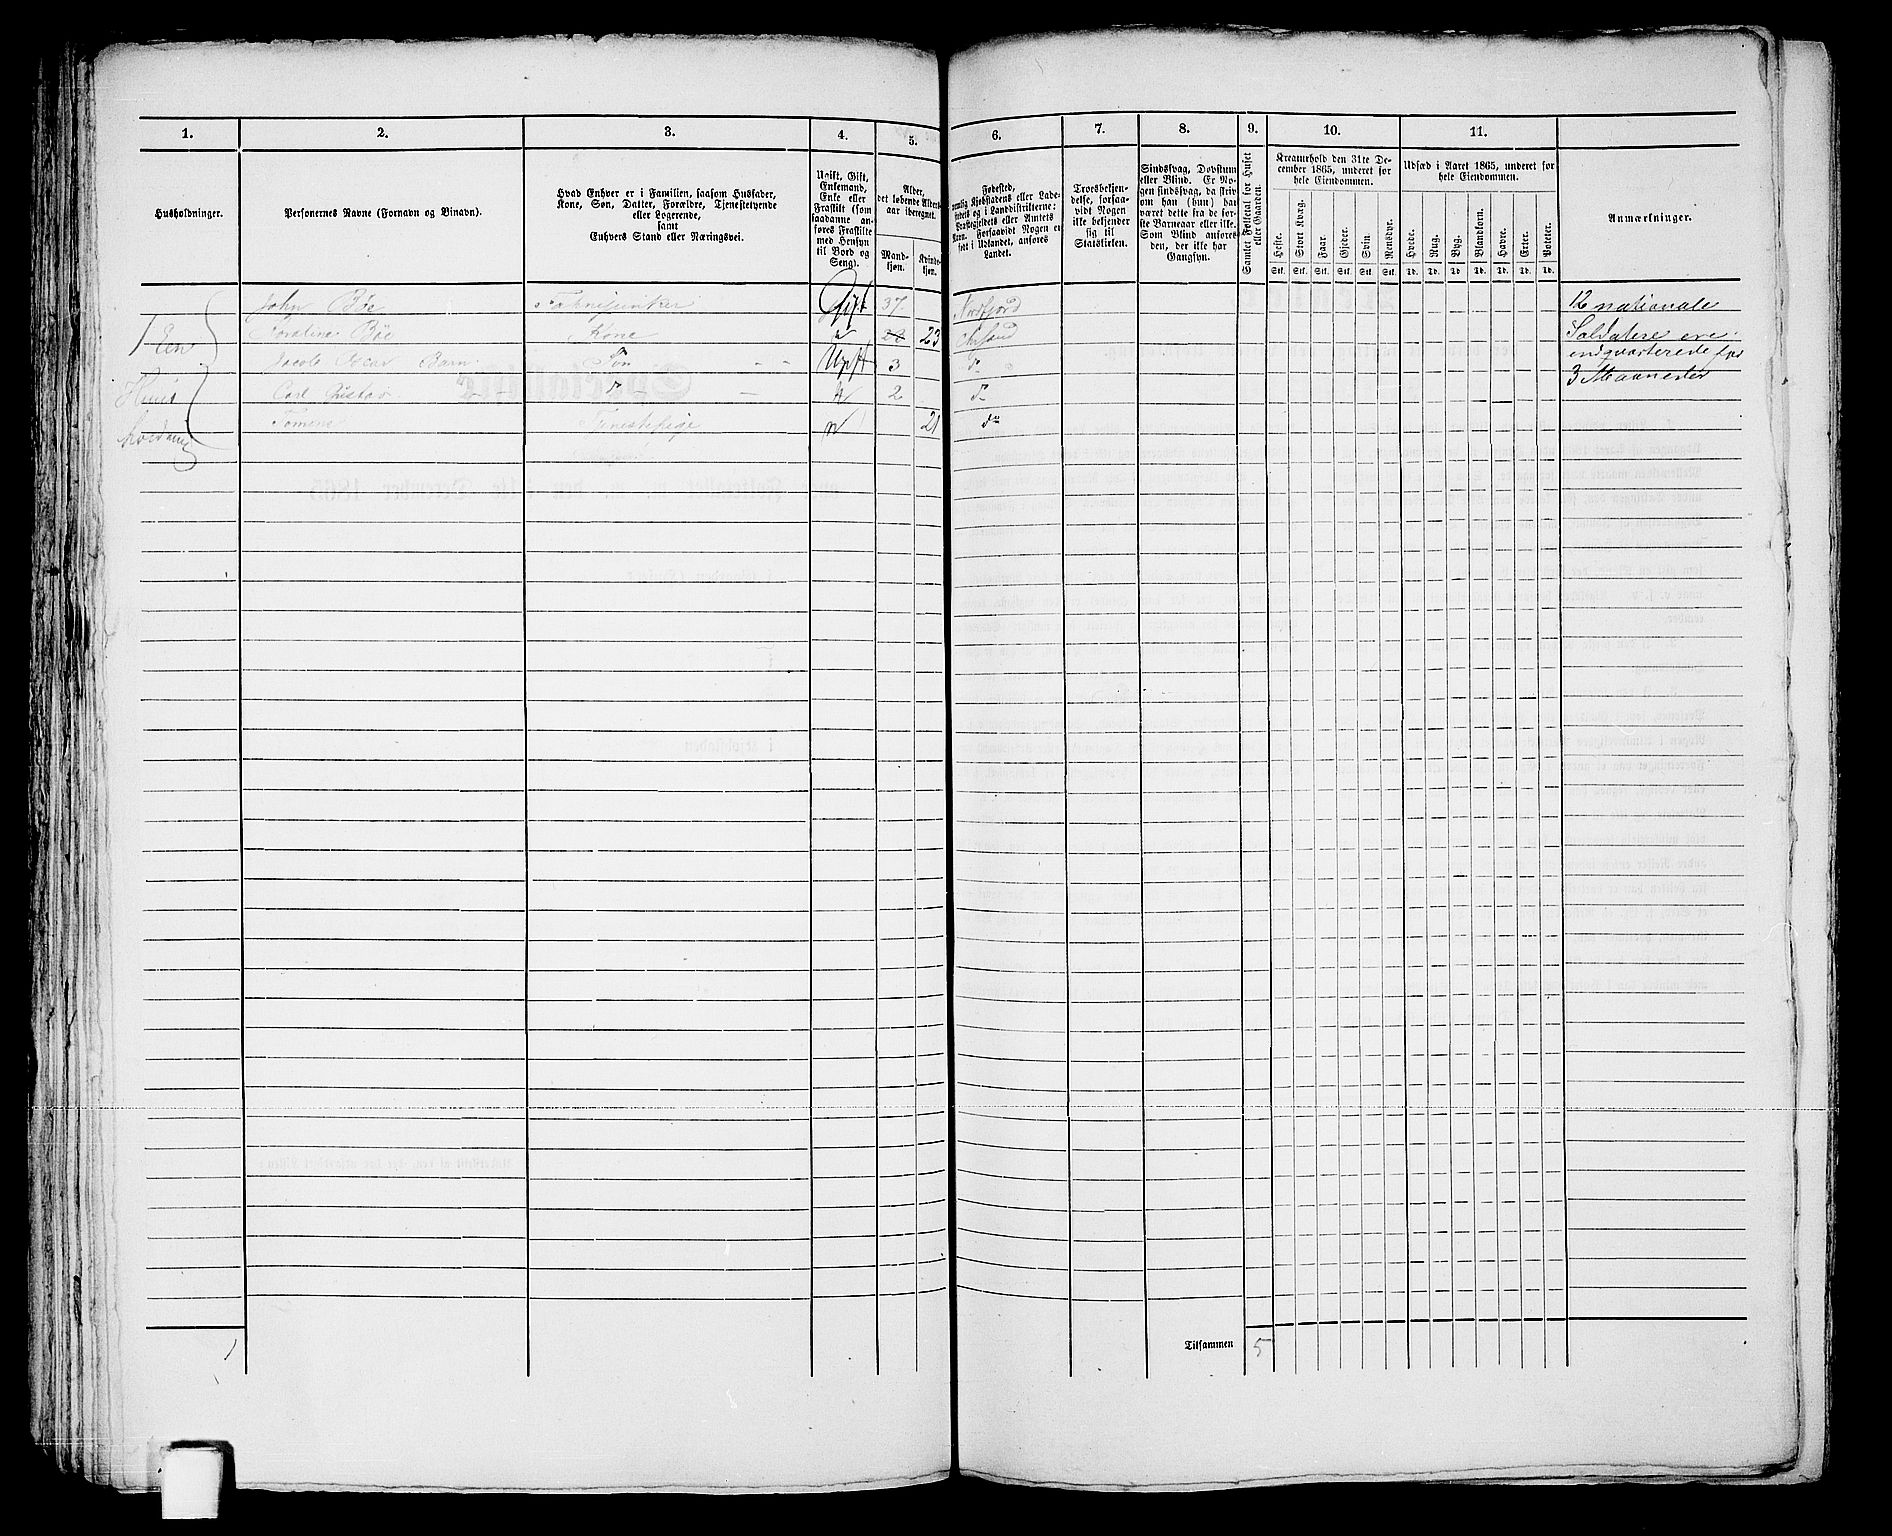 1.
2.
3.
4.
5.
6.
7.
8.
9.
10.
11.
Husholdninger.
Personernes Navne (Fornavn og Binavn).
Hvad Enhver er i Familien, saasom Husfader,
Kone, Søn, Datter, Forældre, Tjenestetyende
eller Logerende,
samt
Enhvers Stand eller Næringsvei.
Ugift, Gift,
Enkemand,
Enke eller
Fraskilt (som
saadanne an-
føres Fraskilte
med Hensyn
til Bord og
Seng).
Alder,
det løbende Alders-
aar iberegnet.
Mand-
kjøn.
Kvinde-
kjøn.
Fødested,
nemlig Kjøbstadens eller Lade-
stedets og i Landdistrikterne:
Præstegjeldets eller Amtets
Navn. Forsaavidt Nogen er
født i Udlandet, anføres
Landet.
Troesbekjen-
delse, forsaa-
vidt Nogen
ikke bekjender
sig til
Statskirken.
Sindssvag, Døvstum
eller Blind. Er No-
gen sindssvag, da skriv
om han (hun) har
været dette fra de før-
ste Barneaar eller ikke.
Som Blind anføres
den, der ikke har
Gangsyn.
Samlet Folketal for Huset
eller Gaarden.
Kreaturhold den 31te De-
cember 1865, underet for
hele Eiendommen.
Heste.
Stort Kvæg.
Faar.
Gjeder.
Svin.
Rensdyr.
Stk. Stk. Stk. Stk. Stk. Stk.
Udsæd i Aaret 1865, underet for
hele Eiendommen.
Hvede.
Rug.
Byg.
Blandkorn.
Havre.
Erter.
Poteter.
Td. Td. Td. Td. Td. Td. Td.
Anmærkninger.
John Bøe Fahnejunker Gift 37 Nordfjord 12 nationale
Een Bøe Kone 23 Soldatere ere
Jacob Oscar Barn Søn Ugift 3 indquarterede for
Carl Gustav 2 3 Maaneder
Tomine Tjenestepige 21
Tilsammen 5